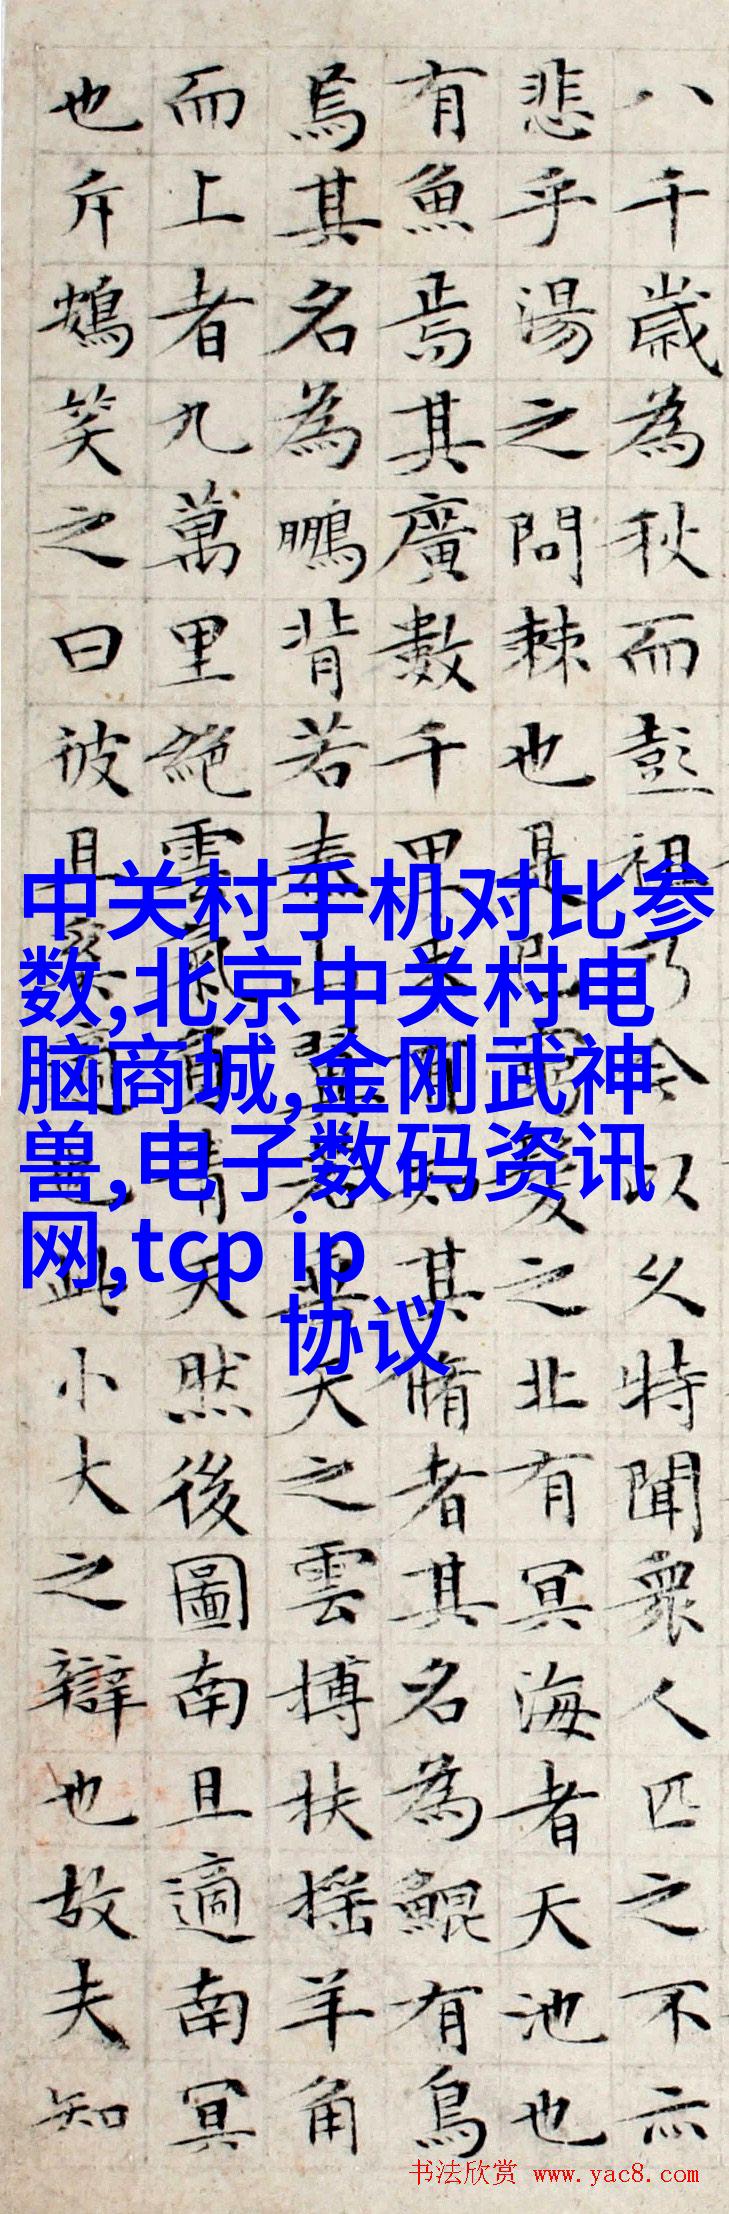 八千歲為秋而彭祖乃今以久特聞衆人匹之不亦
悲乎湯之問棘也是已窮髮之北有冥海者天池也
有魚焉其廣數千里未有知其脩者其名為鯤有鳥
焉其名為鵬背若泰山翼若垂天之雲搏扶搖羊角
而上者九萬里絕雲氣負青天然後圖南且適南冥
也斥鴳笑之曰彼且奚適也此小大之辯也故夫知
中关村手机对比参
数,北京中关村电
脑商城,金刚武神
兽,电子数码资讯
网,tcp ip
协议
书法欣赏 www.yac8.com